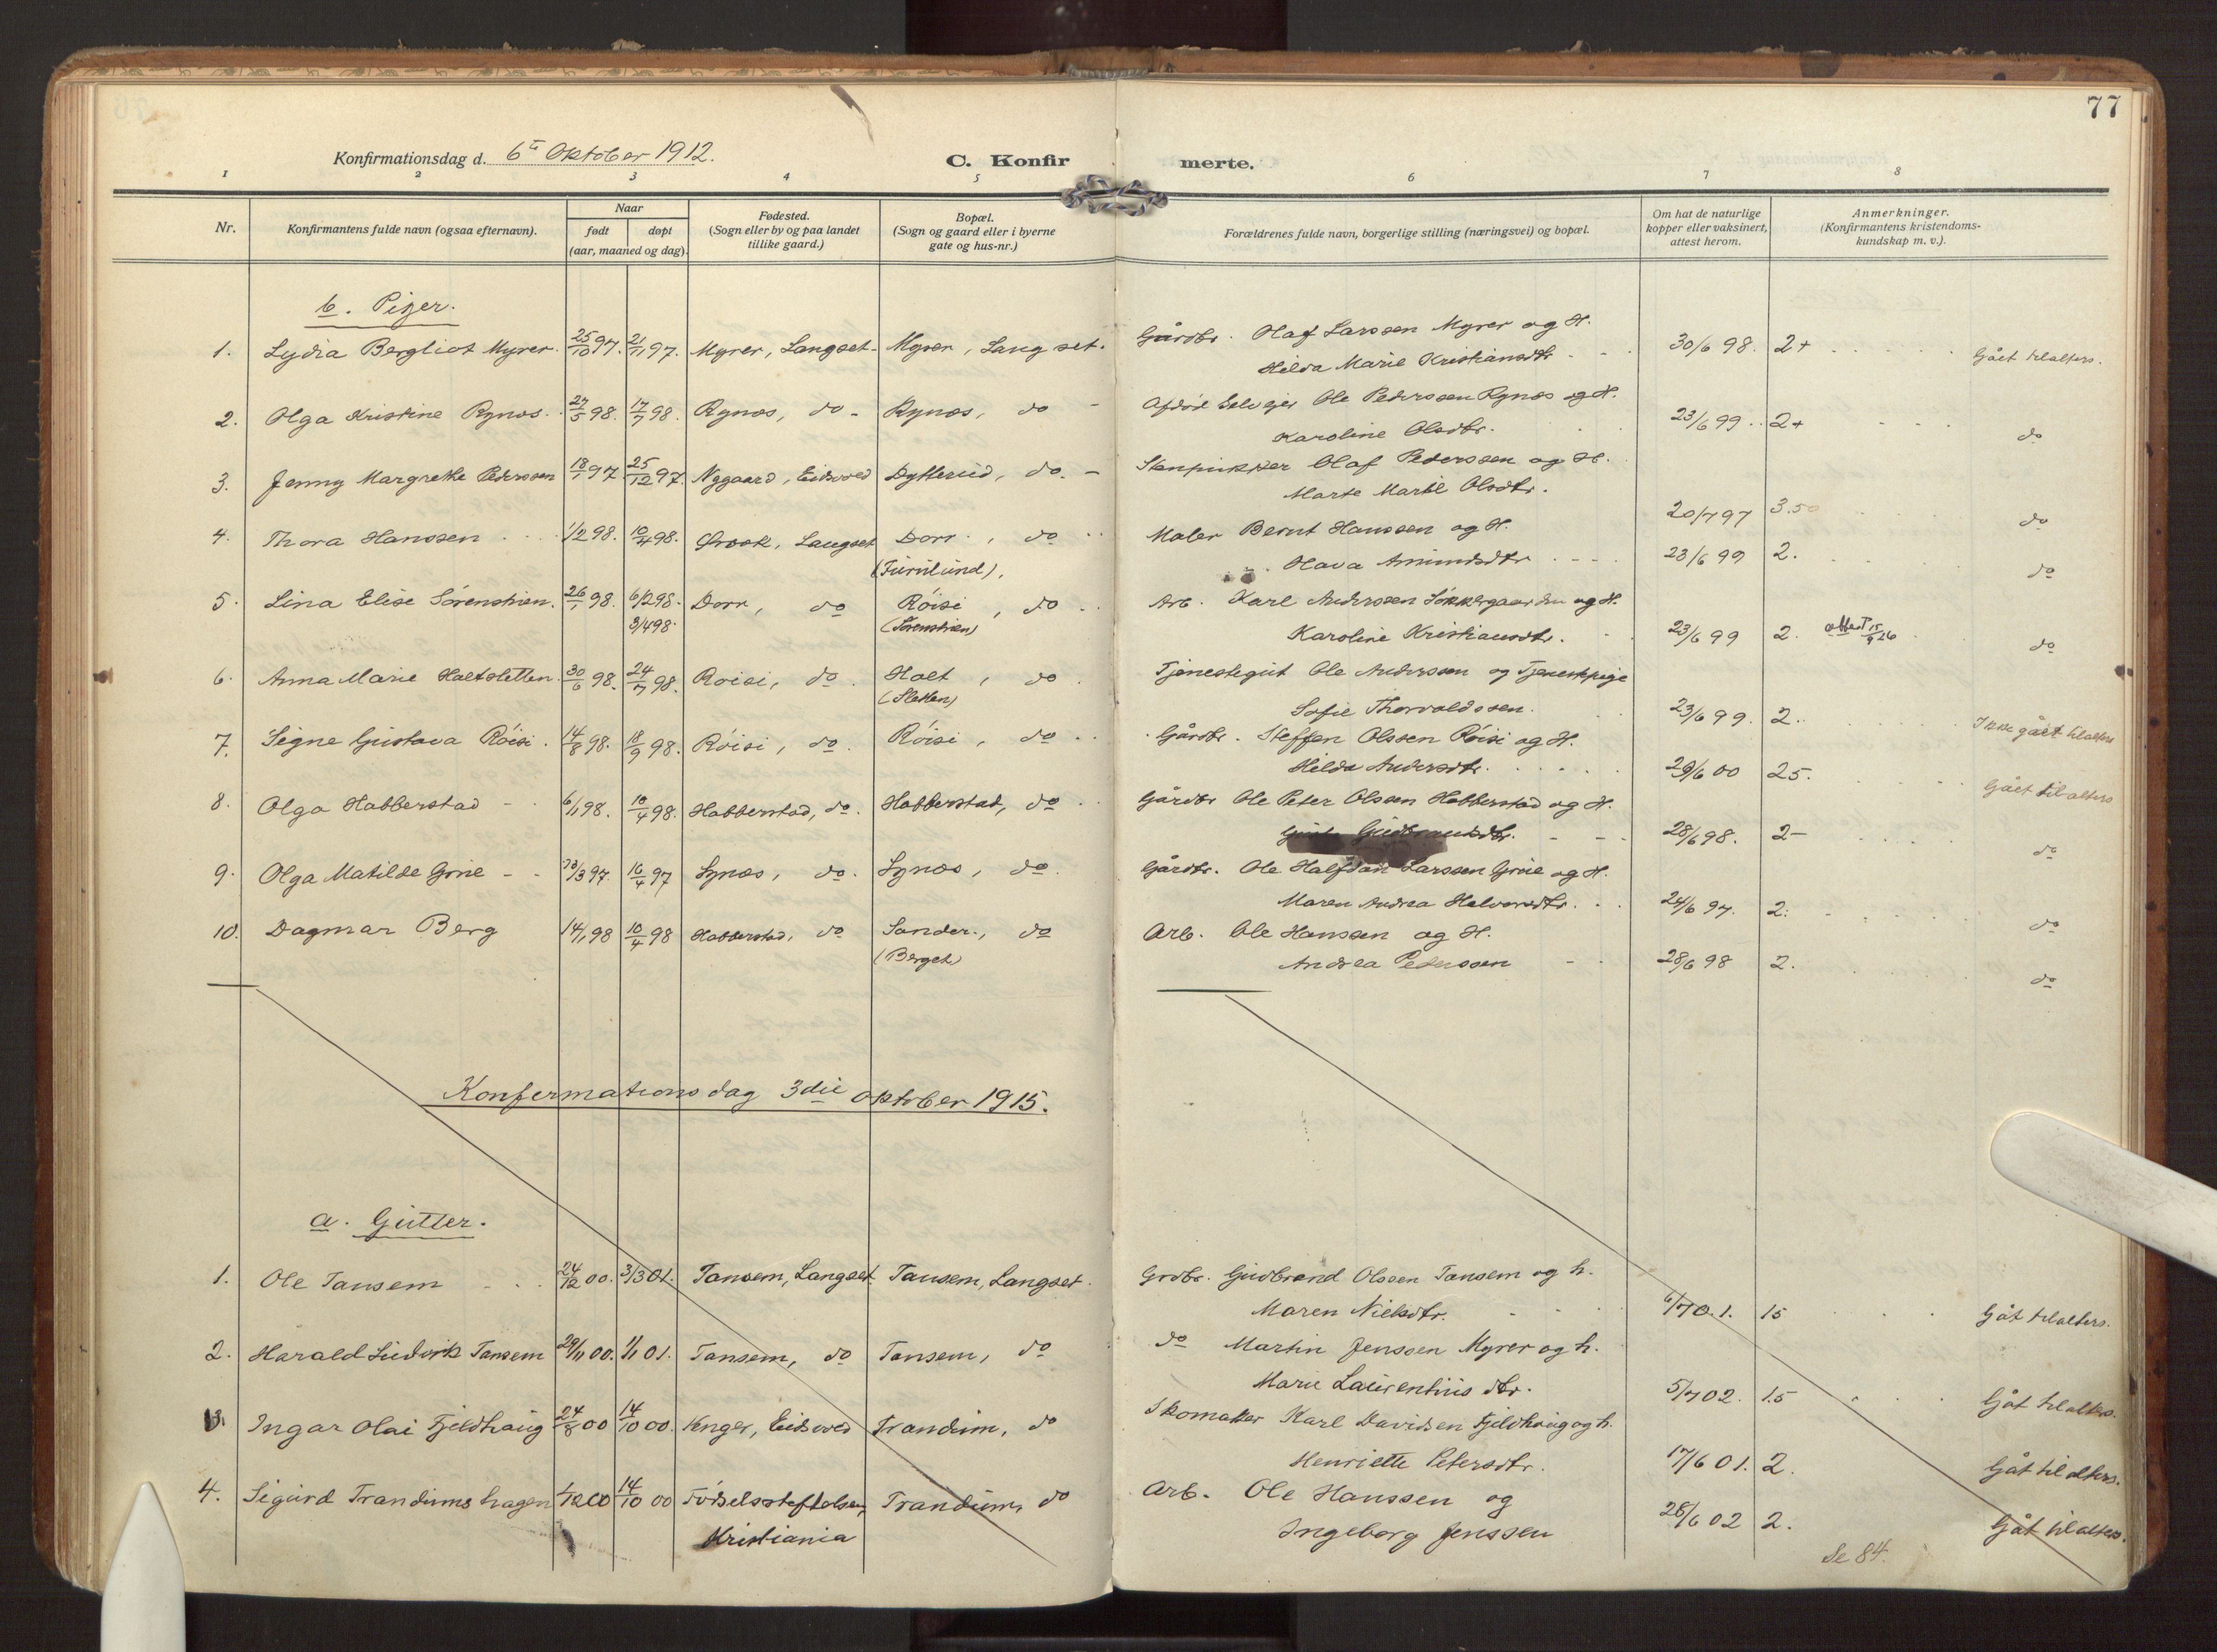 77
Konfirmationsdag d. 6te Oktober 1912.
C. Konfirmerte.
1 2 3 4 5 6 7 8
Nr.
Konfirmantens fulde navn (ogsaa efternavn).
Naar
født døpt
(aar, maaned og dag).
Fødested.
(Sogn eller by og paa landet
tillike gaard.)
Bopæl.
(Sogn og gaard eller i byerne
gate og hus-nr.)
Forældrenes fulde navn, borgerlige stilling (næringsvei) og bopæl.
Om hat de naturlige
kopper eller vaksinert,
attest herom.
Anmerkninger.
(Konfirmantens kristendoms-
kundskap m. v.).
b. Piger.
1. Lydia Bergliot Myrer. 25/10 97. 21/11 97. Myrer, Langset. Myrer, Langset. Gårdbr. Olaf Larssen Myrer og H.
Hilda Marie Kristiansdtr. 30/6 98. 2+ Gået tilalters.
2. Olga Kristine Rynæs. 27/5 98. 17/7 98. Rynæs, do Rynæs, do Afdöd Selveier Ole Pederssen Rynæs og H.
Karoline Olsdtr. 23/6 99. 2+ do
3. Jenny Margrethe Pederssen 18/1 97 25/12 97. Nygaard, Eidsvold Dytterud, do. Stenpukker Olaf Pederssen og H.
Marte Marie Olsdtr. 20/7 97 3.50 do
4. Thora Hanssen 1/2 98. 10/4 98. Langset Dorr, do Maler Bernt Hanssen og H.
(Furulund).
Olava Amundsdtr 23/6 99 2. do
5. Lina Elise Sörenstuen. 26/1 98. 6/2 98. Dorr, do Röisi, do Arb. Karl Anderssen og H.
3/4 98. (Sörenstuen)
Karoline Kristiansdtr. 23/6 99 2. attest 15/9 26 do
6. Anna Marie Holtsletten. 30/6 98. 24/7 98. Röisi, do. Holt, do Tjenestegut Ole Anderssen og Tjenestepige
(Sletten)
Sofie Thorvaldssen. 23/6 99. 2. Ikke gået tilalters
7. Signe Gustava Röisi. 14/8 98. 18/9 98. Röisi, do. Röisi, do Gårdbr. Steffen Olssen Röisi og H.
Hilda Andersdtr. 29/6 00 25. Gået tilalters
8. Olga Habberstad 6/1 98. 10/4 98. Habberstad, do. Habberstad, do Gårdbr Ole Peter Olssen Habberstad og H.
Gudbrandsdtr. 28/6 98. 2- do
9. Olga Matilde Grue 23/3 97. 16/4 97 Lynæs, do. Lynæs, do. Gårdbr. Ole Halfdan Larssen Grue og H.
Maren Andrea Halvorsdtr. 24/6 97. 2. do
10. Dagmar Berg 14/1 98 10/4 98 Habberstad, do Sander, do Arb. Ole Hanssen og H.
(Berget)
Andrea Peterssen 28/6 98 2. do
Konfermationsdag 3die oktober 1915.
a. Gutter.
1. Ole Tansem 24/12 00. 3/3 01. Tansem, Langset Tansem, Langset. Grdbr. Gudbrand Olssen Tansem og h.
Maren Nielsdtr. 6/7 01. 15 Gåt tilalters.
2. Harald Ludvik Tansem 29/11 00. 1/1 01. Tansem, do Tansem, do do Martin Jenssen Myrer og h.
Marie Laurentius dtr. 5/7 02. 1.5 Gåt tilalters.
3. Ingar Olai Fjeldhaug 24/8 00 14/10 00. Enger, Eidsvold Trandum, do Skomaker Karl Davidsen Fjeldhaug og h.
Henriette Petersdtr. 17/6 01. 2. Gåt tilalters.
4. Sigurd Trandumshagen 1/12 00 14/10 00 Födselsstiftelsen, Trandum, do Arb. Ole Hanssen og
Kristiania
Ingeborg Jenssen 28/6 02 2. Gåt tilalters.
Se 84.